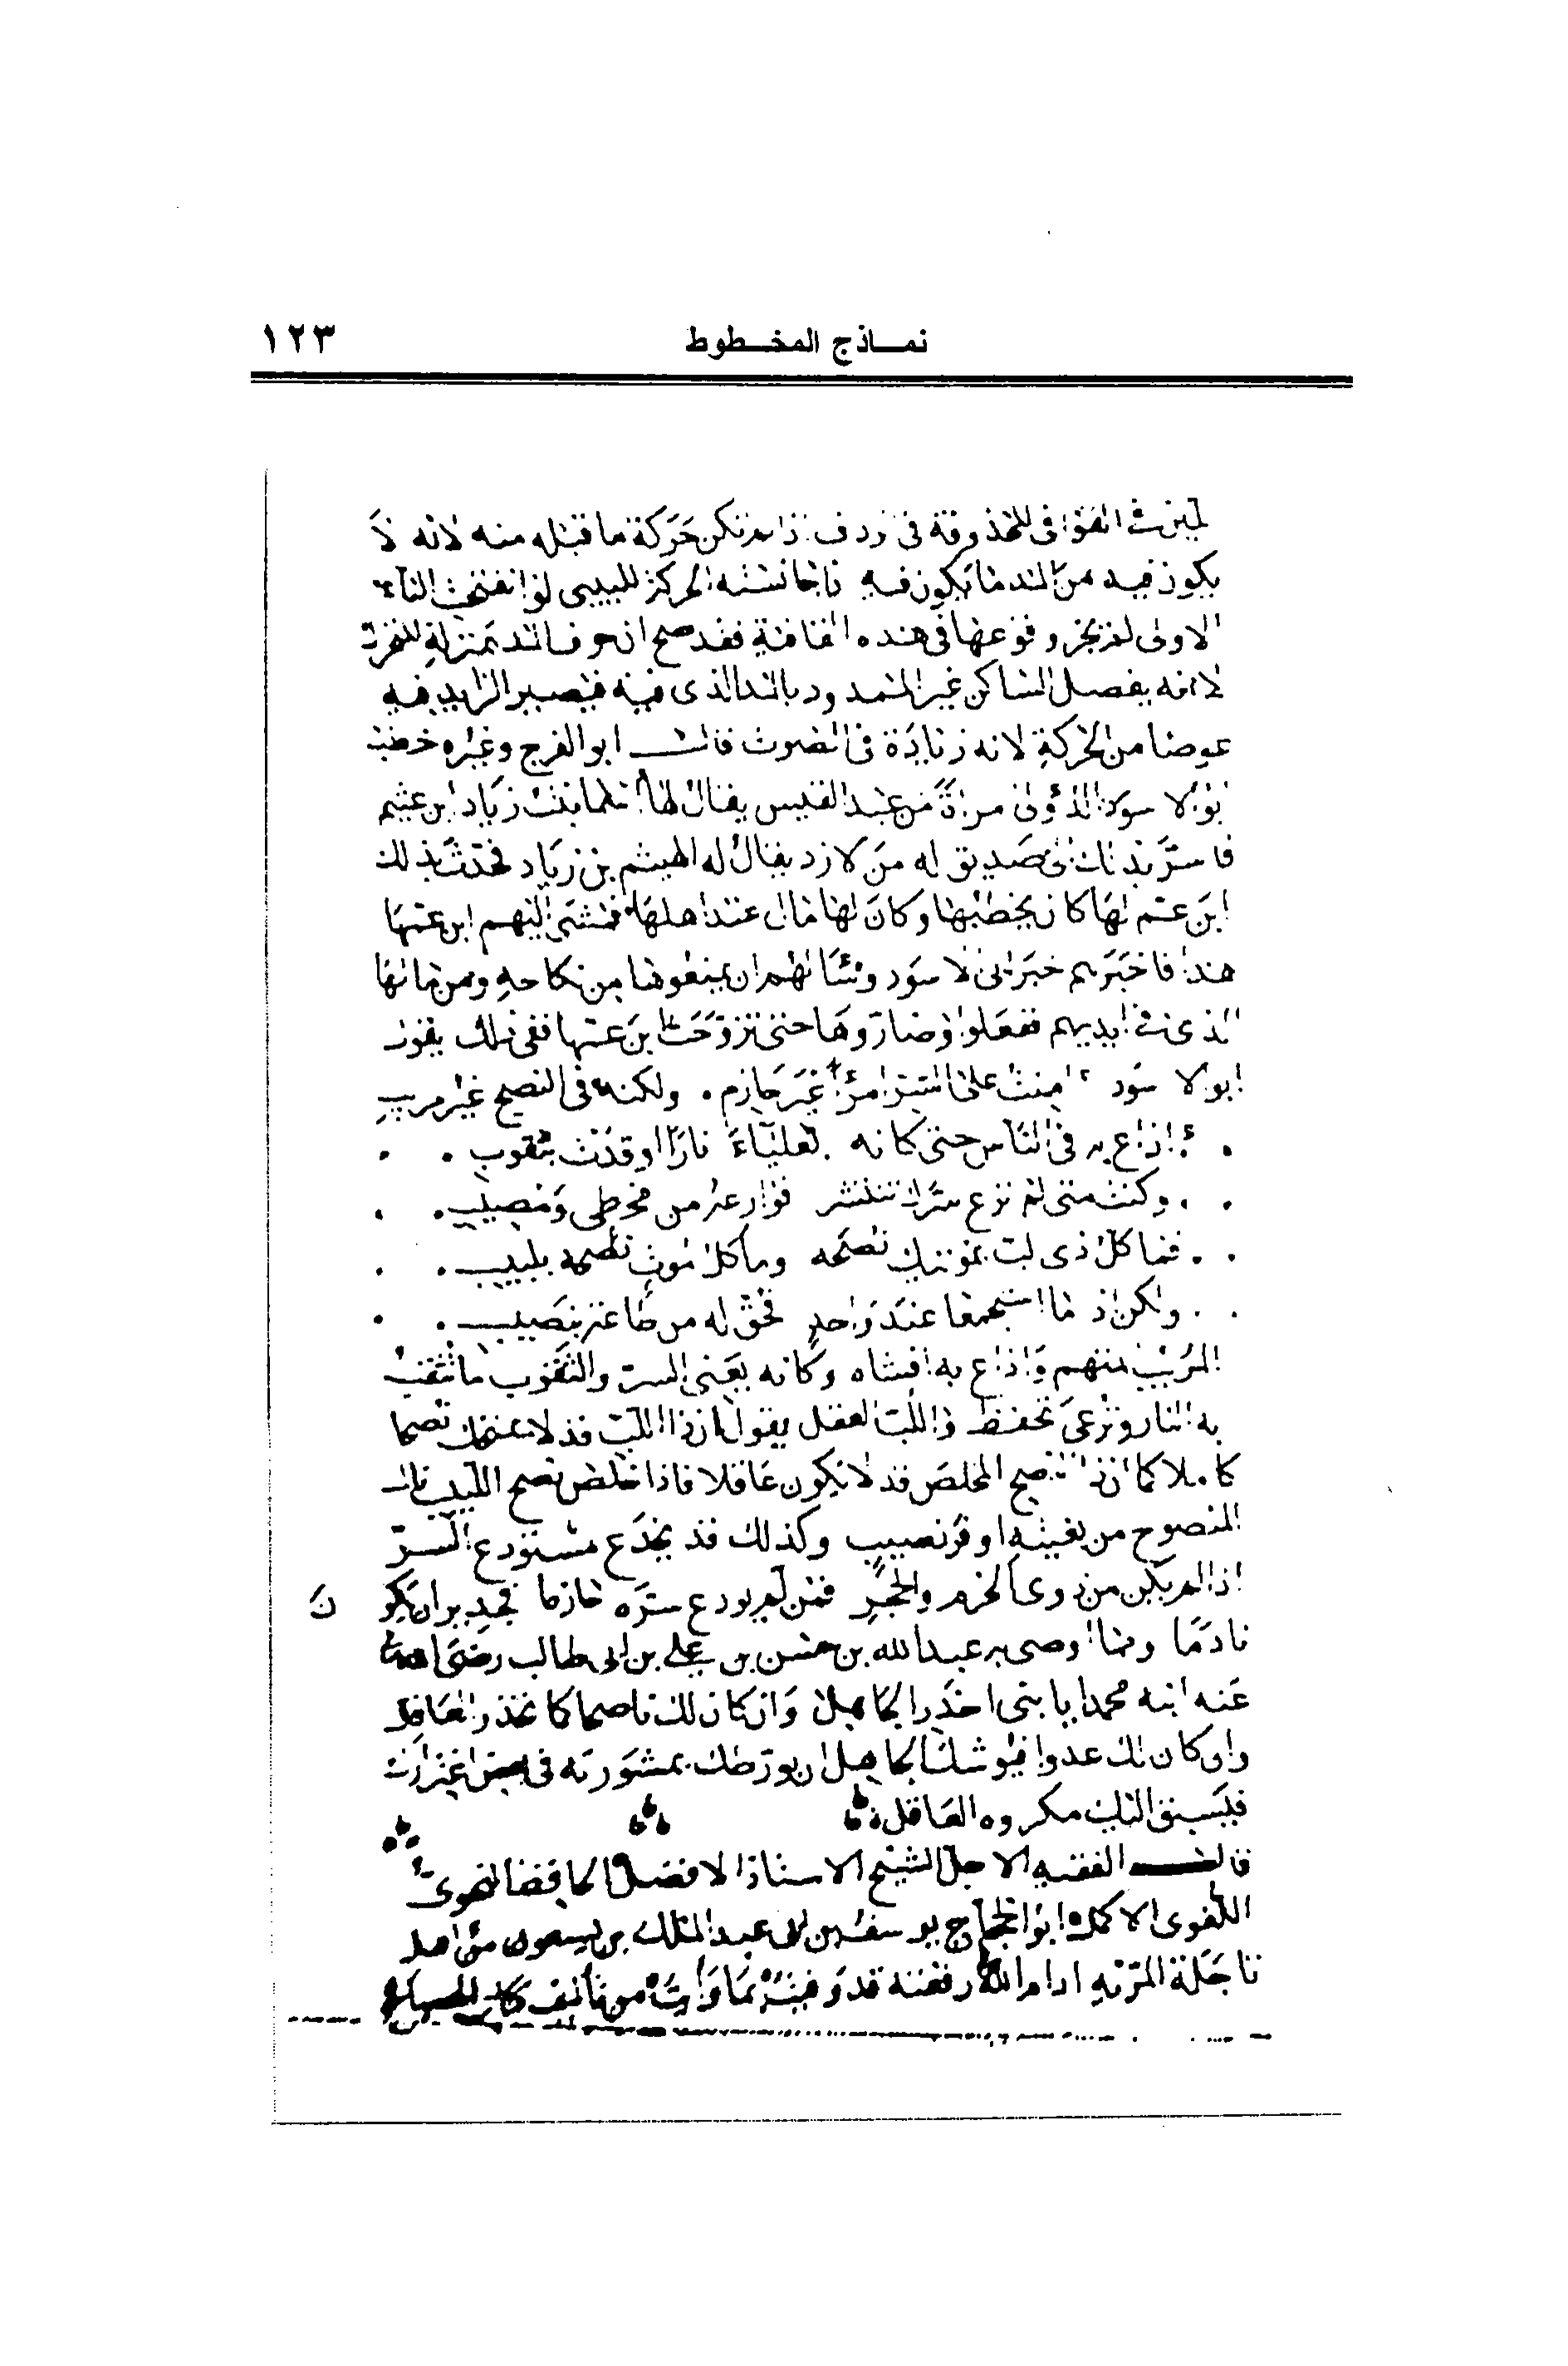 نماذج المخطوط ١٢٣
فى ردف تكن حركة ما قبله منه لانه لا
يكون فيه من المد ما يكون فيه لو انفتحت الياء
الاولى لم يجز وقوعها فى هذه القافية فقد صح ان حرف المد بمنزلة
لانه يفصل الساكن غير الممدود بالمد الذى فيه فيصير الزايد فيه
عوضا من الحركة لانه زيادة فى الصوت قال ابو الفرج وغيره خطب
ابو الاسود الدؤلى امراة من عبد القيس يقال لها اسما بنت زياد بن غنيم
فاسر بذلك الى صديق له من الازد يقال له الهيثم بن زياد فحدث بذلك
ابن عم لها كان يخطبها وكان لها مال عند اهلها فمشى اليهم ابن عمها
هذا فاخبرهم خبر ابى الاسود وسالهم ان يمنعوها من نكاحه ومن مالها
الذى فى ايديهم ففعلوا وضاروها حتى تزوجت ابن عمها ففى ذلك يقول
ابو الاسود امنت على السر امرأ غير حازم ولكنه فى النصح غير مريب
اذاع به فى الناس حتى كانه بعلياء نارا اوقدت بثقوب
وكنت متى لم ترع سرك تنتشر قوارعه من مخطى ومصيب
فما كل ذى لب بموتيك نصحه وما كل موت نصحه بلبيب
ولكن اذا ما استجمعا عند واحد فحق له من طاعة بنصيب
المريب المتهم واذاع به افشاه وكانه يعنى السر والثقوب ما تثقب
به النار وترعى تحفظ واللب العقل يقول ان ذا اللب قد لا يمنحك نصحا
كاملا كما ان ذا النصح المخلص قد لا يكون عاقلا فاذا خلص نصح اللبيب نال
المنصوح من بغيته اوفر نصيب وكذلك قد يخدع مستودع السر
اذا لم يكن من ذوى الحزم والحجر فمن لم يودع سره حازما فجدير ان يكون
نادما ومما اوصى به عبد الله بن حسن بن على بن ابى طالب رضى الله
عنه ابنه محمدا يا بنى احذر الجاهل وان كان لك ناصحا كما تحذر العاقل
وان كان لك عدوا فيوشك الجاهل ان يورطك بمشورته فى بعض اغترارك
فيسبق اليك مكروه العاقل
قال الفقيه الاجل الشيخ الاستاذ الافضل الحافظ النحوى
اللغوى الاكمل ابو الحجاج يوسف بن ابى عبد الملك بن يسعون من اهل
تاجلة المرية ادام الله رفعته قد وفيت بما وايت من تاليف كتاب المصباح